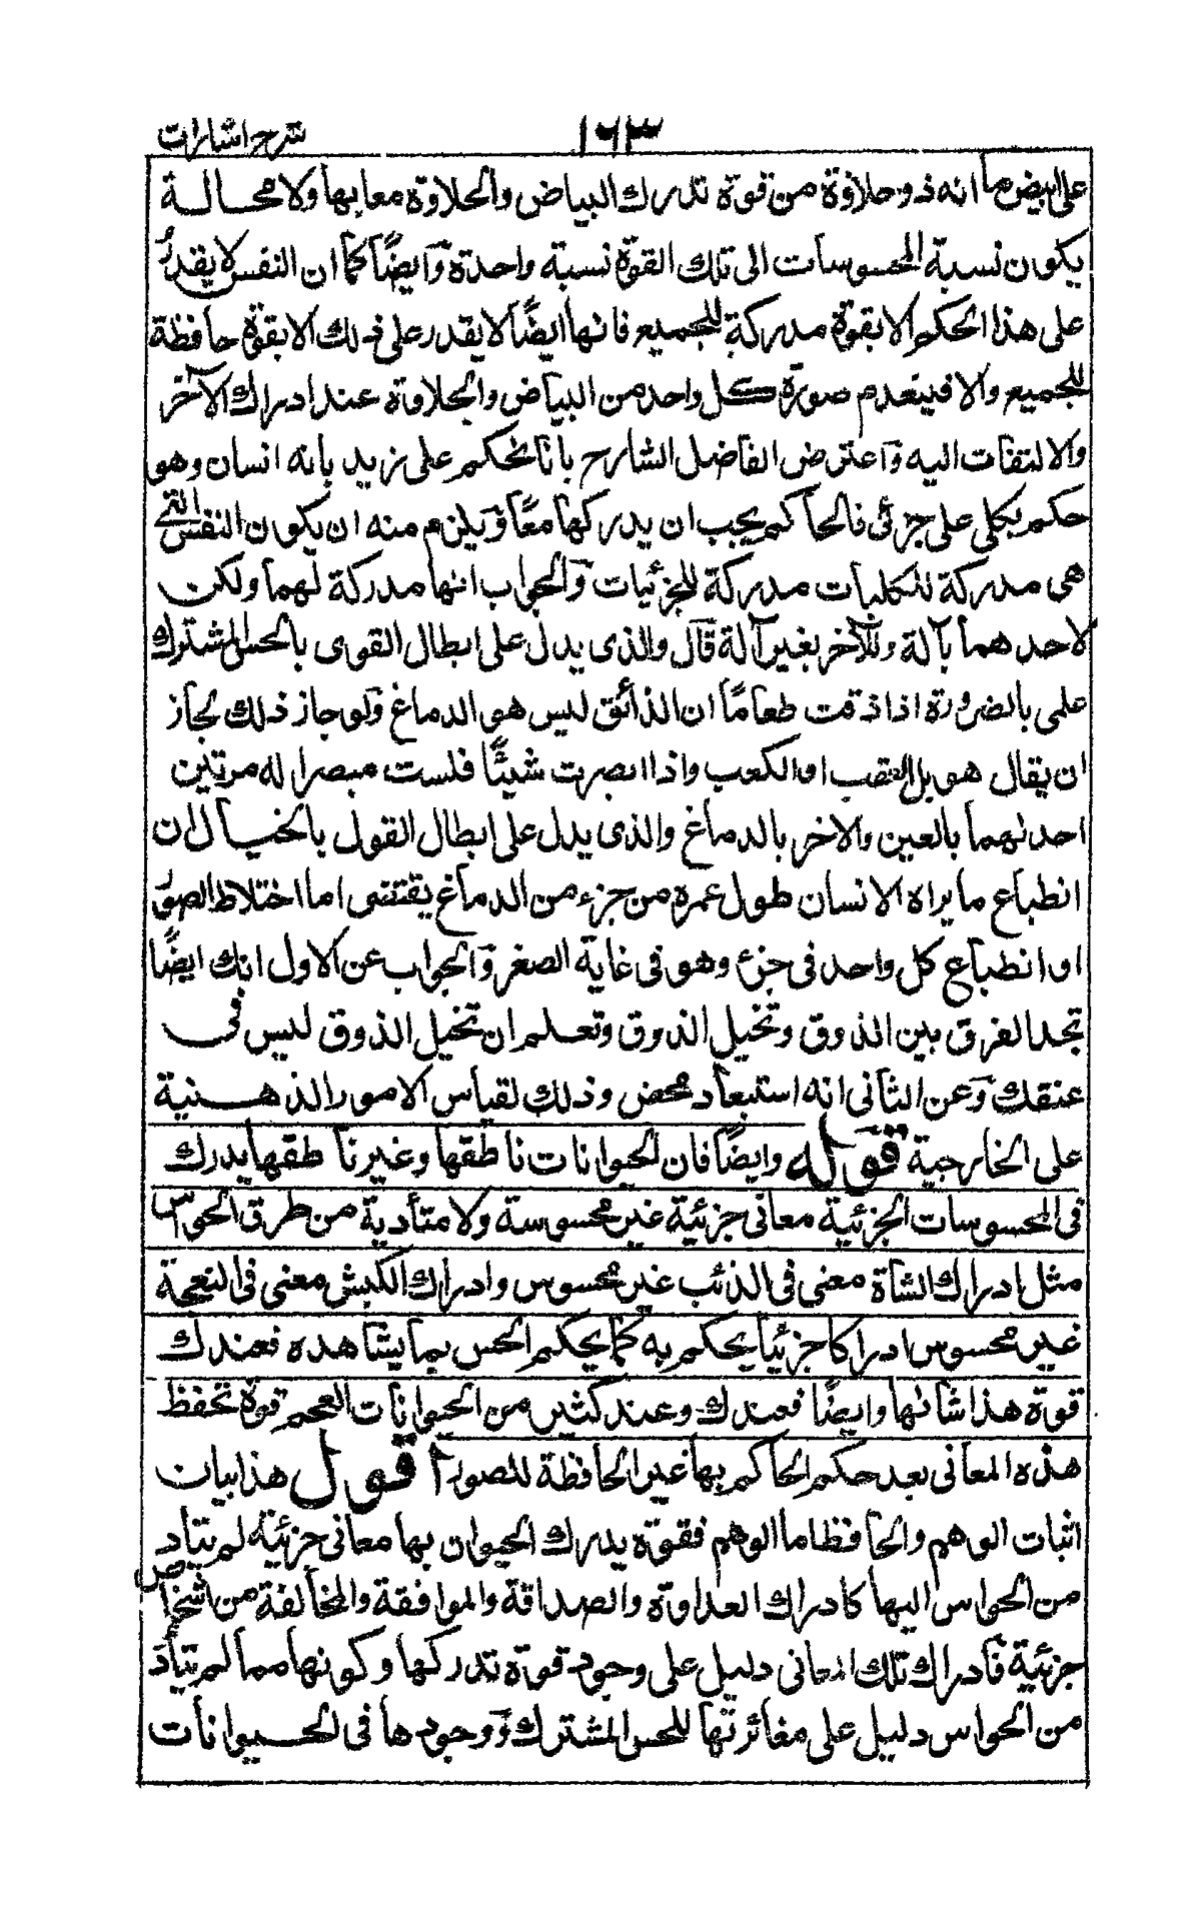 شرح اشارات
١٦٣
على ابيض ما انه ذو حلاوة من قوة تدرك البياض والحلاوة معا بها ولا محالة
يكون نسبة المحسوسات الى تلك القوة نسبة واحدة وايضًا كما ان النفس لا يقدر
على هذا الحكم الا بقوة مدركة للجميع فانها ايضًا لا يقدر على ذلك الا بقوة حافظة
للجميع والا فينعدم صورة كل واحد من البياض والحلاوة عند ادراك الآخر
والالتفات اليه واعترض الفاضل الشارح بانا نحكم على زيد بانه انسان وهو
حكم بكلى على جزئى فالحاكم يجب ان يدركهما معًا ويلزم منه ان يكون النفس التى
هى مدركة للكليات مدركة للجزئيات والجواب انها مدركة لهما ولكن
لاحدهما بآلة وللآخر بغير آلة قال والذى يدل على ابطال القوى بالحس المشترك
علمى بالضرورة اذا ذقت طعامًا ان الذائق ليس هو الدماغ ولو جاز ذلك لجاز
ان يقال هو بل العقب او الكعب واذا ابصرت شيئًا فلست مبصرا له مرتين
احدلهما بالعين والاخر بالدماغ والذى يدل على ابطال القول بالخيال ان
انطباع ما يراه الانسان طول عمره من جزء من الدماغ يقتضى اما اختلاط الصور
او انطباع كل واحد فى جزء وهو فى غاية الصغر والجواب عن الاول انك ايضًا
تجد الفرق بين الذوق وتخيل الذوق وتعلم ان تخيل الذوق ليس فى
عنقك وعن الثانى انه استبعاد محض وذلك لقياس الامور الذهنية
على الخارجية قوله وايضًا فان الحيوانات ناطقها وغير ناطقها يدرك
فى المحسوسات الجزئية معانى جزئية غير محسوسة ولا متأدية من طرق الحواس
مثل ادراك الشاة معنى فى الذئب غير محسوس وادراك الكبش معنى فى النعجة
غير محسوس ادراكا جزئيا يحكم به كما يحكم الحس بما يشاهده فعندك
قوة هذا شانها وايضًا فعندك وعند كثير من الحيوانات العجم قوة تحفظ
هذه المعانى بعد حكم الحاكم بها غير الحافظة للصور اقول هذا بيان
اثبات الوهم والحافظ اما الوهم فقوة يدرك الحيوان بها معانى جزئية لم يتاد
من الحواس اليها كادراك العداوة والصداقة والموافقة والمخالفة من اشخاص
جزئية فادراك تلك المعانى دليل على وجود قوة تدركها وكونها مما لم يتاد
من الحواس دليل على مغائرتها للحس المشترك ووجودها فى الحيوانات